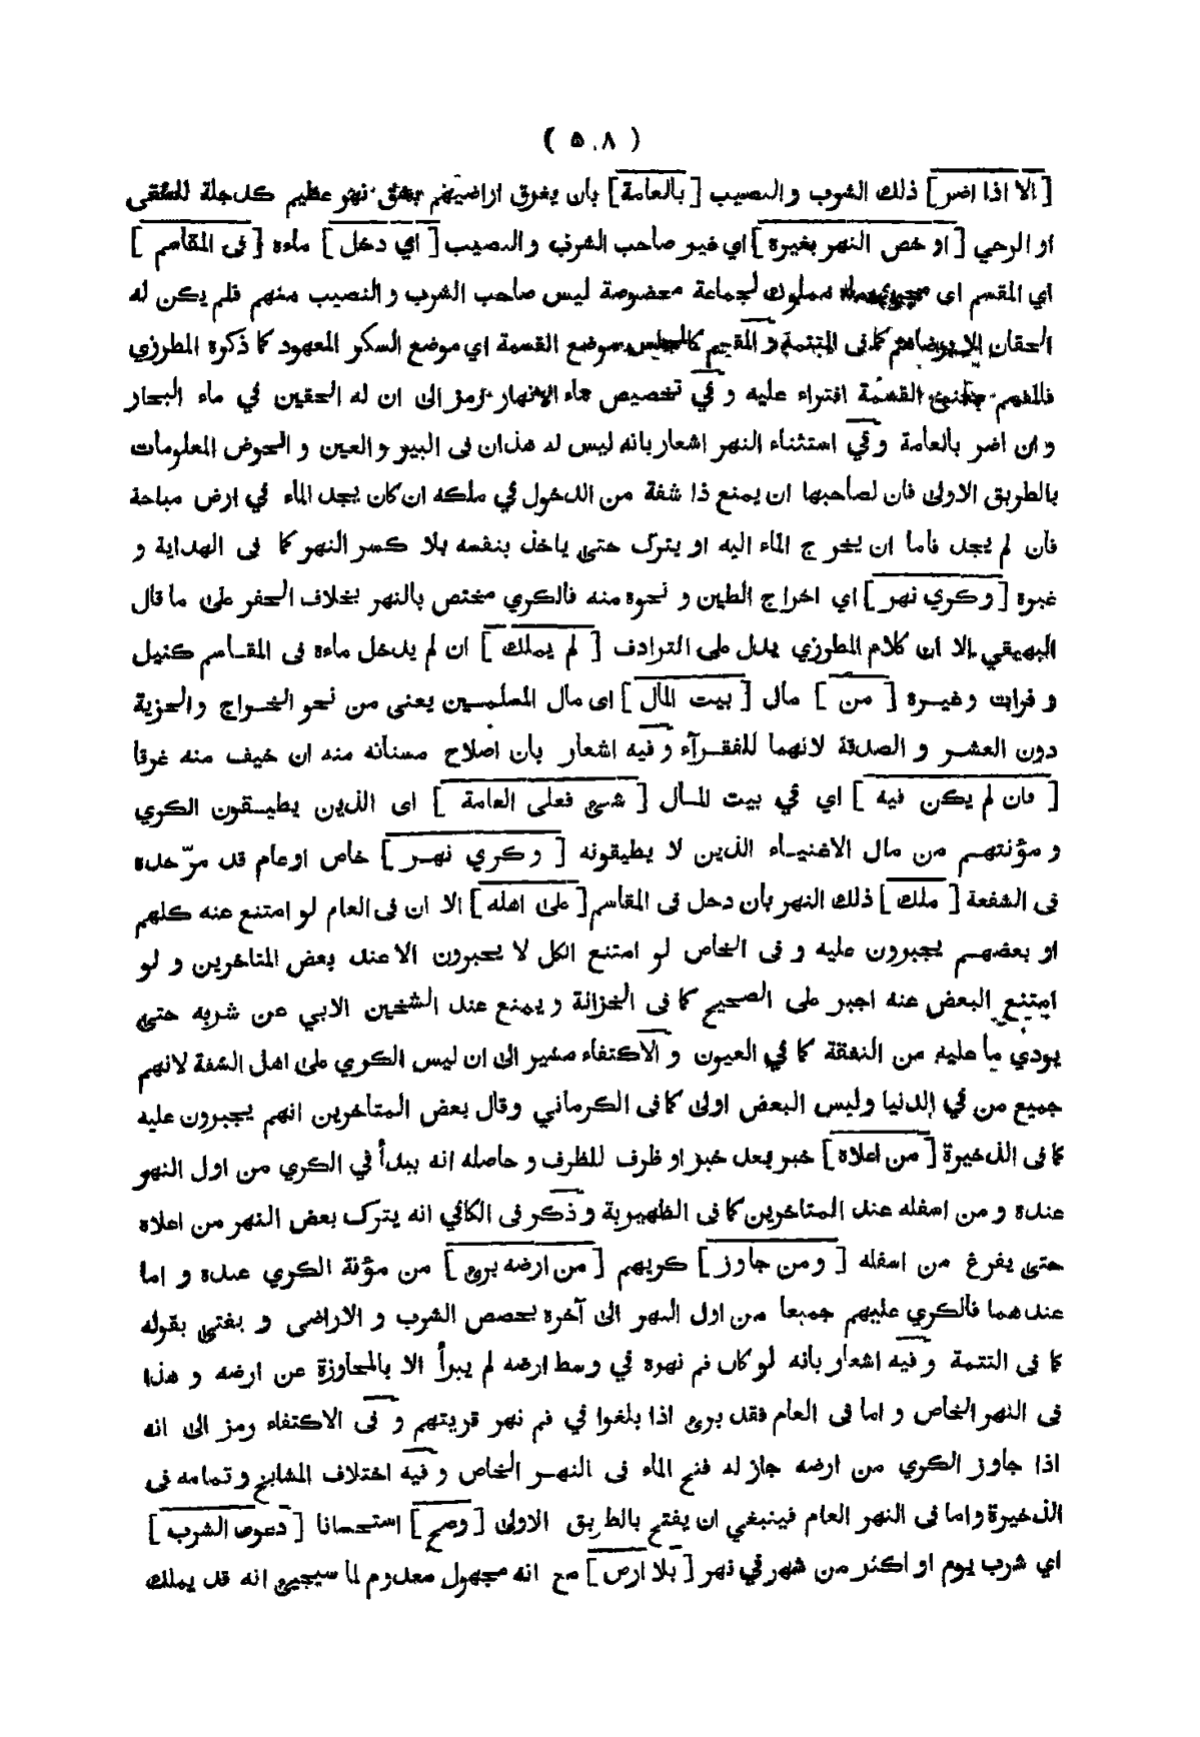 ( ٥٠٨ )
[ الا اذا اضر ] ذلك الشرب و النصيب [ بالعامة ] بأن يغرق اراضيهم بشق نهر عظيم كدجلة للسقى
او الرحي [ او خص النهر بغيره ] اي غير صاحب الشرب و النصيب [ اي دخل ] ماءه [ فى المقاسم ]
اي المقسم اى مملوك لجماعة مخصوصة ليس صاحب الشرب و النصيب منهم فلم يكن له
الحقان الا برضاهم كما فى التتمة و المقسم كالمجلس موضع القسمة اي موضع السكر المعهود كما ذكره المطرزي
القسمة افتراء عليه و في تخصيص ماء الانهار رمز الى ان له الحقين في ماء البحار
و ان اضر بالعامة و في استثناء النهر اشعار بانه ليس له هذان فى البير و العين و الحوض المعلومات
بالطريق الاولى فان لصاحبها ان يمنع ذا شفة من الدخول في ملكه ان كان يجد الماء في ارض مباحة
فان لم يجد فاما ان يخرج الماء اليه او يترك حتى ياخذ بنفسه بلا كسر النهر كما فى الهداية و
غيره [ و كري نهر ] اي اخراج الطين و نحوه منه فالكري مختص بالنهر بخلاف الحفر على ما قال
البهيقي الا ان كلام المطرزي يدل على الترادف [ لم يملك ] ان لم يدخل ماءه فى المقاسم كنيل
و فرات و غيره [ من ] مال [ بيت المال ] اى مال المسلمين يعنى من نحو الخراج و الجزية
دون العشر و الصدقة لانهما للفقرآء و فيه اشعار بان اصلاح مسناته منه ان خيف منه غرقا
[ فان لم يكن فيه ] اي في بيت المال [ شىء فعلى العامة ] اى الذين يطيقون الكري
و مؤنتهم من مال الاغنياء الذين لا يطيقونه [ و كري نهر ] خاص او عام قد مرّ حده
فى الشفعة [ ملك ] ذلك النهر بأن دخل فى المقاسم [ على اهله ] الا ان فى العام لو امتنع عنه كلهم
او بعضهم يجبرون عليه و فى الخاص لو امتنع الكل لا يجبرون الا عند بعض المتاخرين و لو
امتنع البعض عنه اجبر على الصحيح كما فى الخزانة و يمنع عند الشخين الابي عن شربه حتى
يودي ما عليه من النفقة كما في العيون و الاكتفاء مشير الى ان ليس الكري على اهل الشفة لانهم
جميع من في الدنيا وليس البعض اولى كما فى الكرماني وقال بعض المتاخرين انهم يجبرون عليه
كما فى الذخيرة [ من اعلاه ] خبر بعد خبر او ظرف للظرف و حاصله انه يبدأ في الكري من اول النهر
عنده و من اسفله عند المتاخرين كما فى الظهيرية و ذكر فى الكافي انه يترك بعض النهر من اعلاه
حتى يفرغ من اسفله [ و من جاوز ] كريهم [ من ارضه برى ] من مؤنة الكري عنده و اما
عندهما فالكري عليهم جميعا من اول النهر الى آخره بحصص الشرب و الاراضى و يفتى بقوله
كما فى التتمة و فيه اشعار بانه لو كان فم نهره في وسط ارضه لم يبرأ الا بالمجاوزة عن ارضه و هذا
فى النهر الخاص و اما فى العام فقد برى اذا بلغوا في فم نهر قريتهم و فى الاكتفاء رمز الى انه
اذا جاوز الكري من ارضه جاز له فتح الماء فى النهر الخاص و فيه اختلاف المشايخ و تمامه فى
الذخيرة و اما فى النهر العام فينبغي ان يفتح بالطريق الاولى [ وصح ] استحسانا [ دعوى الشرب ]
اي شرب يوم او اكثر من شهر في نهر [ بلا ارض ] مع انه مجهول معدوم لما سيجيى انه قد يملك